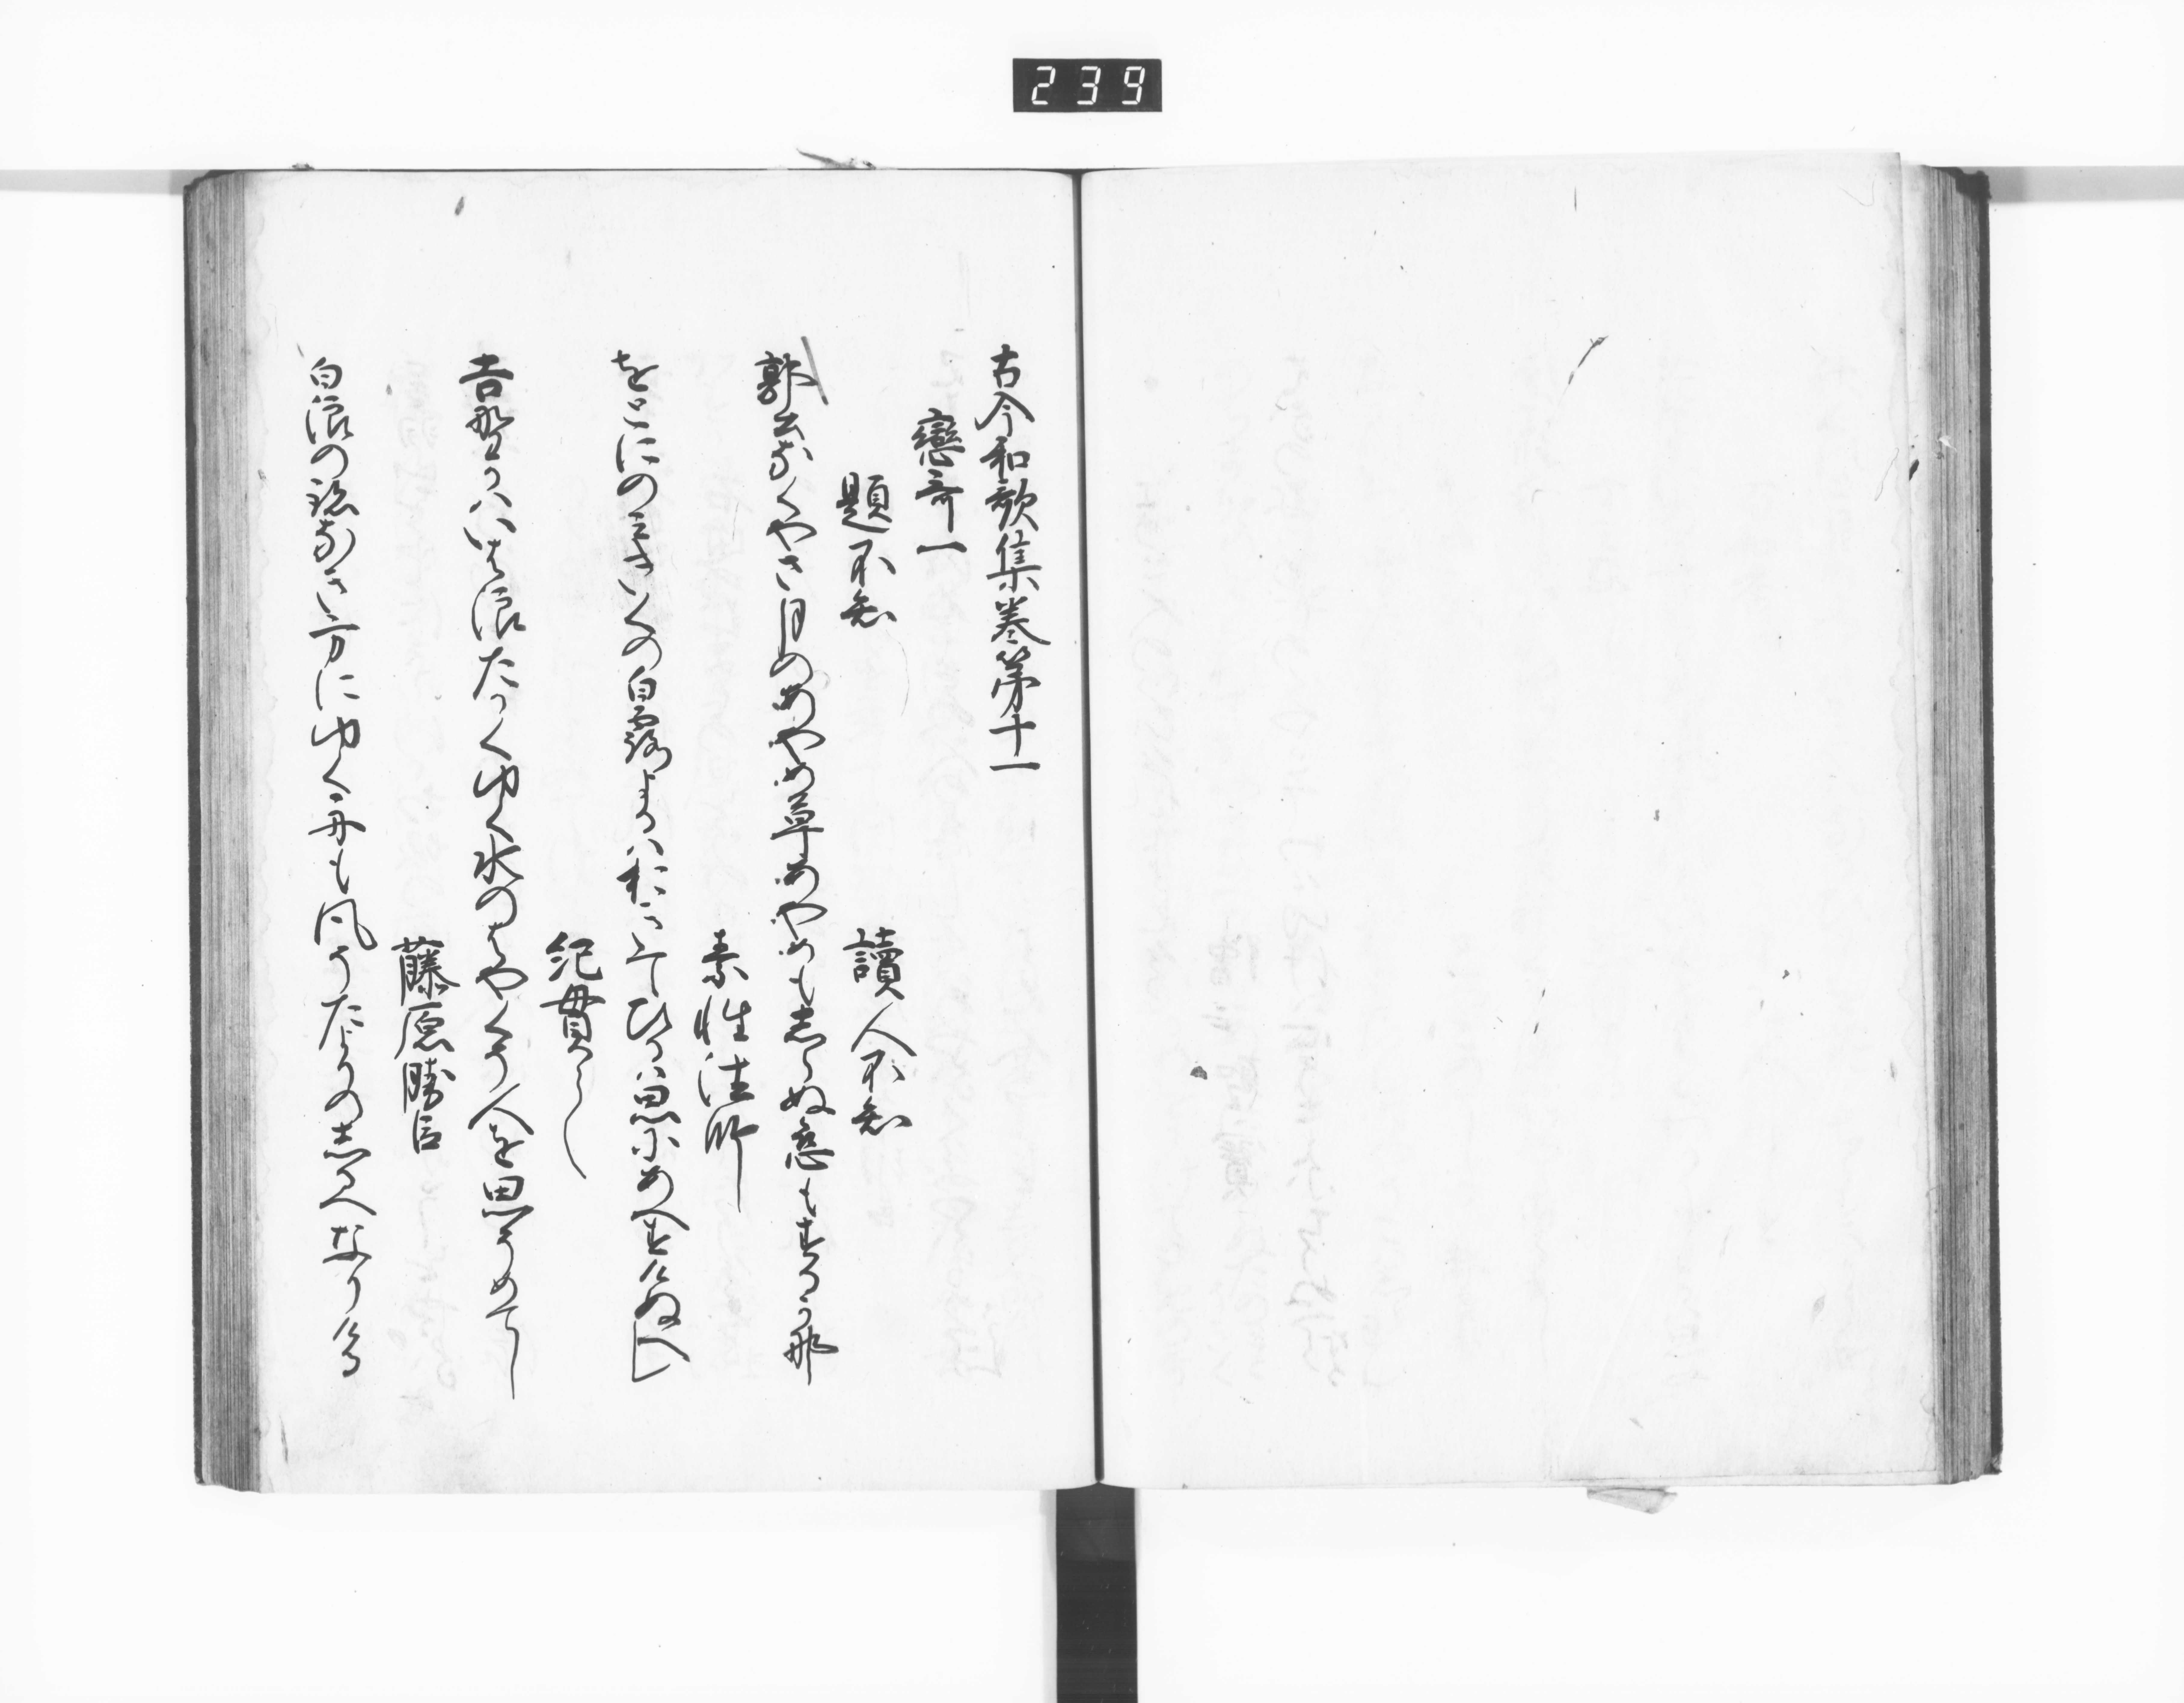 239
古今和歌集巻第十一
戀哥一
題不知
讀人不知
郭公なくやさ月のあやめ草あやめもしらぬ恋もするか那
素性法師
をとにのミきくの白露よるハおきてひるハ思にあへすけぬへし
紀貫之
吉野かハいは浪たかくゆく水のはやくそ人を思そめてし
藤原勝臣
白浪の跡なき方にゆく舟も風そたよりのしるへなりける